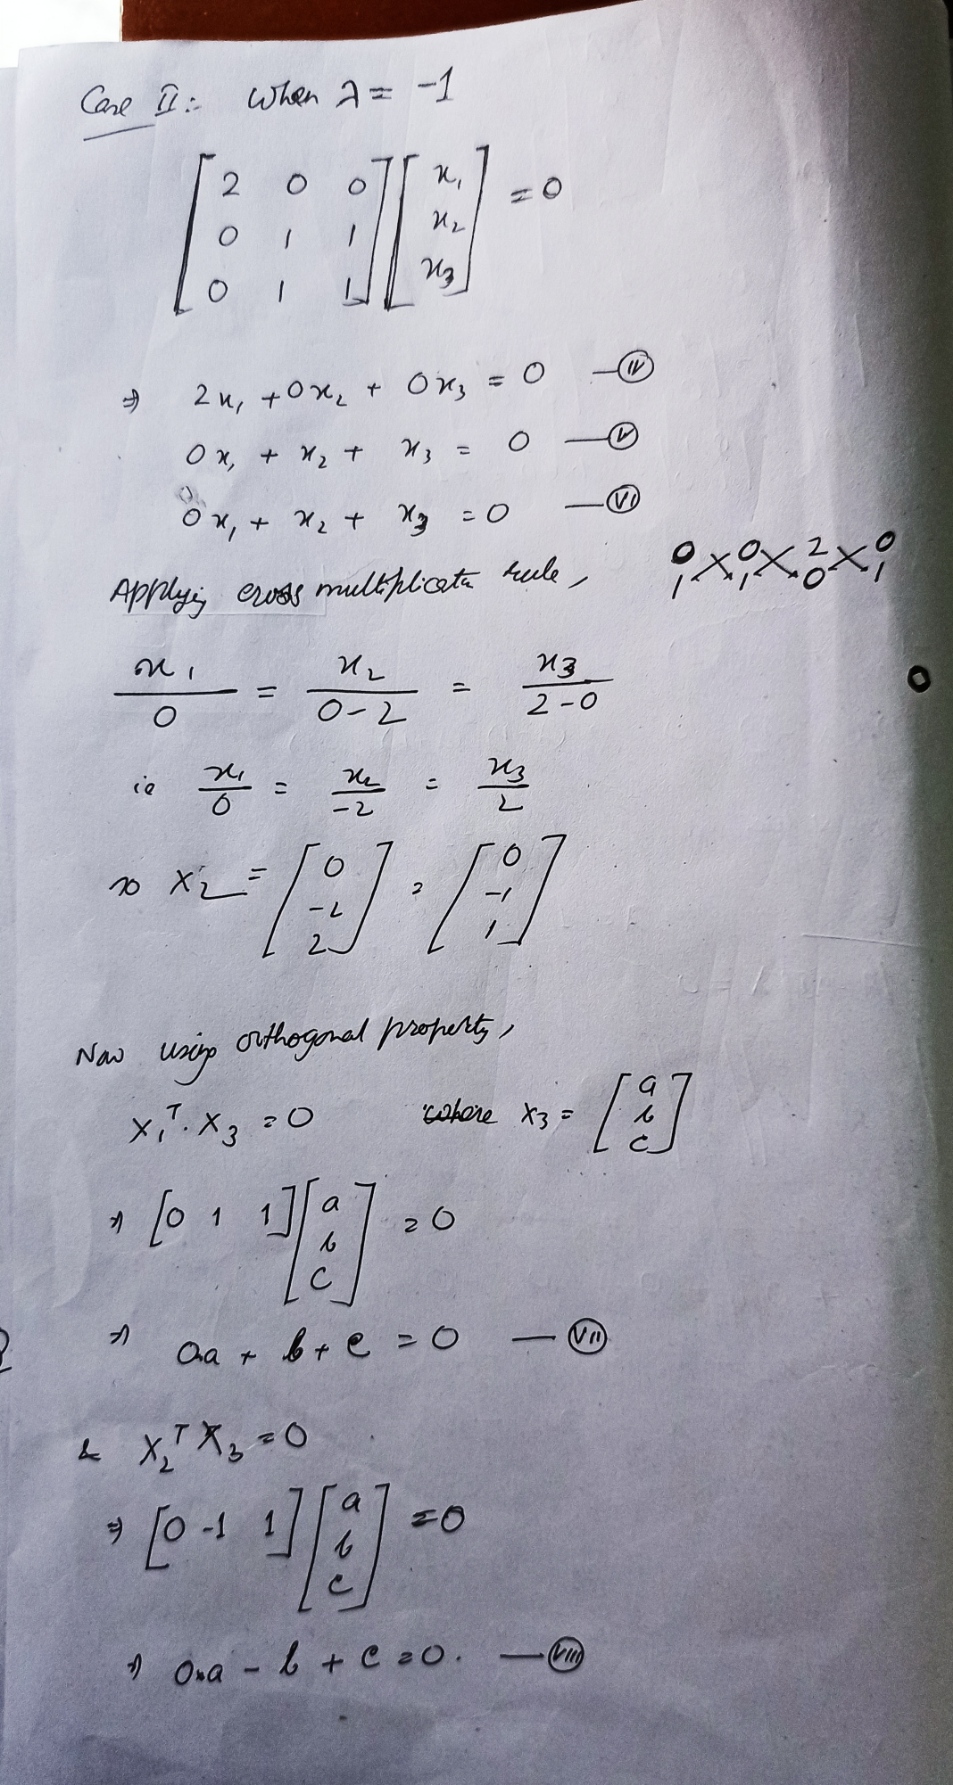 Case II :- When λ = -1
[2 0 0; 0 1 1; 0 1 1] [x₁; x₂; x₃] = 0
⇒ 2x₁ + 0x₂ + 0x₃ = 0 — (IV)
0x₁ + x₂ + x₃ = 0 — (V)
0x₁ + x₂ + x₃ = 0 — (VI)
Applying cross multiplicatn rule,
0 0 2 0
1 1 0 1
x₁/0 = x₂/(0-2) = x₃/(2-0)
ie x₁/0 = x₂/-2 = x₃/2
so X₂ = [0; -2; 2] = [0; -1; 1]
Now using orthogonal property,
X₁ᵀ. X₃ = 0 where X₃ = [a; b; c]
⇒ [0 1 1] [a; b; c] = 0
⇒ 0.a + b + c = 0 — (VII)
& X₂ᵀ X₃ = 0
⇒ [0 -1 1] [a; b; c] = 0
⇒ 0.a - b + c = 0. — (VIII)